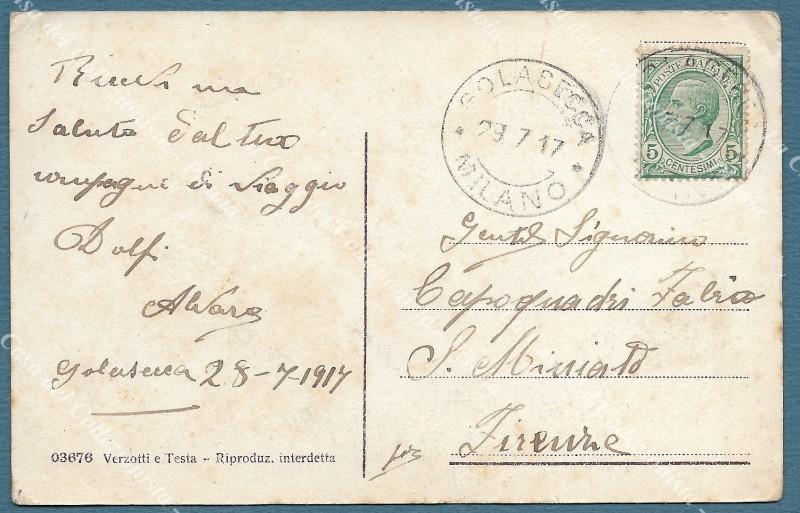 saluto dal tuo
compagni di viaggio
Dolfi
Alvaro
Golasecca 28-7-1917
03676 Verzotti e Testa - Riproduz. interdetta
GOLASECCA
29 7 17
MILANO
POSTE ITALIANE
5 CENTESIMI 5
Gentil Signorino
Capoquadri Fabio
S. Miniato
Firenze